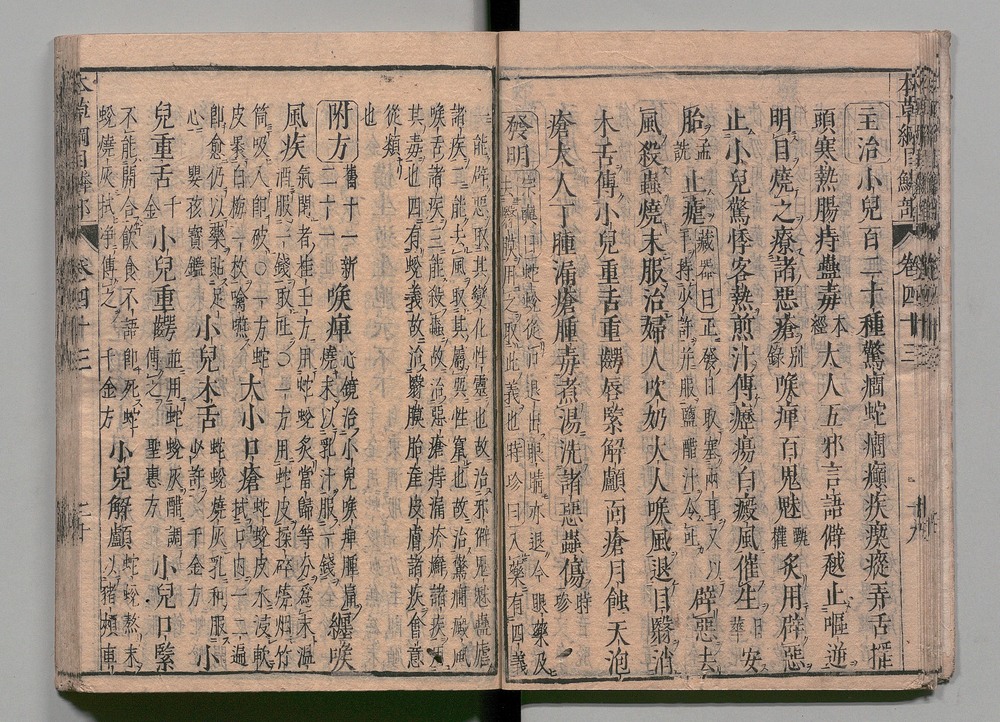 本草綱目鱗部 卷四十三 十九
主治小兒百二十種驚癇蛇癇癲疾瘈瘲弄舌搖
頭寒熱腸痔蠱毒本經大人五邪言語僻越止嘔逆
明目燒之療諸惡瘡別錄喉痺百鬼魅甄權炙用辟惡
止小兒驚悸客熱煎汁傅癧瘍白癜風催生日華安
胎孟詵止瘧藏器曰正發日取塞兩耳又以手持少許并服鹽醋汁令吐辟惡去
風殺蟲燒末服治婦人吹奶大人喉風退目翳消
木舌傅小兒重舌重齶唇緊解顱面瘡月蝕天泡
瘡大人丁腫漏瘡腫毒煮湯洗諸惡蟲傷時珍
發明宗奭曰蛇蛻從口退出眼睛亦退今眼藥及去翳膜用之取此義也時珍曰入藥有四義
一能辟惡取其變化性靈也故治邪僻鬼魅蠱瘧
諸疾二能去風取其屬巽性竄也故治驚癇癜風
喉舌諸疾三能殺蟲故治惡瘡痔漏疥癬諸疾用
其毒也四有蛻義故治翳膜胎產皮膚諸疾會意
從類也
附方舊十一新二十一喉痺心鏡治小兒喉痺腫痛燒末以乳汁服一錢纏喉
風疾氣閉者杜壬方用蛇蛻炙當歸等分爲末溫酒服一錢取吐○一方用蛇皮揉碎燒烟竹
筒吸入即破○一方蛇皮裹白梅一枚噙嚥大小口瘡蛇蛻皮水浸軟拭口內一二遍
即愈仍以藥貼足心嬰孩寶鑑小兒木舌蛇蛻燒灰乳和服少許千金方小
兒重舌千金小兒重齶並用蛇蛻灰醋調傅之聖惠方小兒口緊
不能開合飲食不語即死蛇蛻燒灰拭淨傅之千金方小兒解顱蛇蛻熬末以豬頰車
本草綱目鱗部 卷四十三 二十